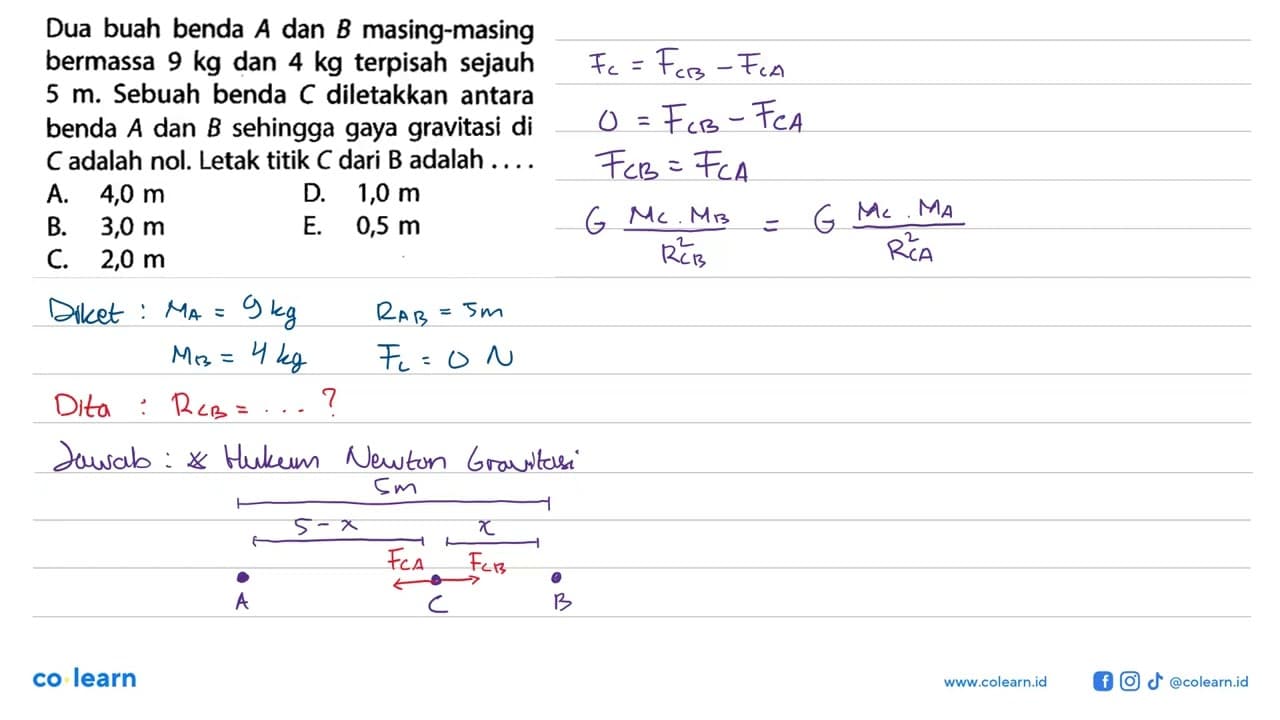 Dua buah benda A dan B masing-masing
bermassa 9 kg dan 4 kg terpisah sejauh
5 m. Sebuah benda C diletakkan antara
benda A dan B sehingga gaya gravitasi di
C adalah nol. Letak titik C dari B adalah ....
A. 4,0 m D. 1,0 m
B. 3,0 m E. 0,5 m
C. 2,0 m
F_C = F_CB - F_CA
0 = F_CB - F_CA
F_CB = F_CA
G M_C . M_B / R²_CB = G M_C . M_A / R²_CA
Diket : M_A = 9 kg R_AB = 5 m
M_B = 4 kg F_C = 0 N
Dita : R_CB = ... ?
Jawab : * Hukum Newton Gravitasi
5 m
5 - x x
F_CA F_CB
A C B
co learn
www.colearn.id @colearn.id